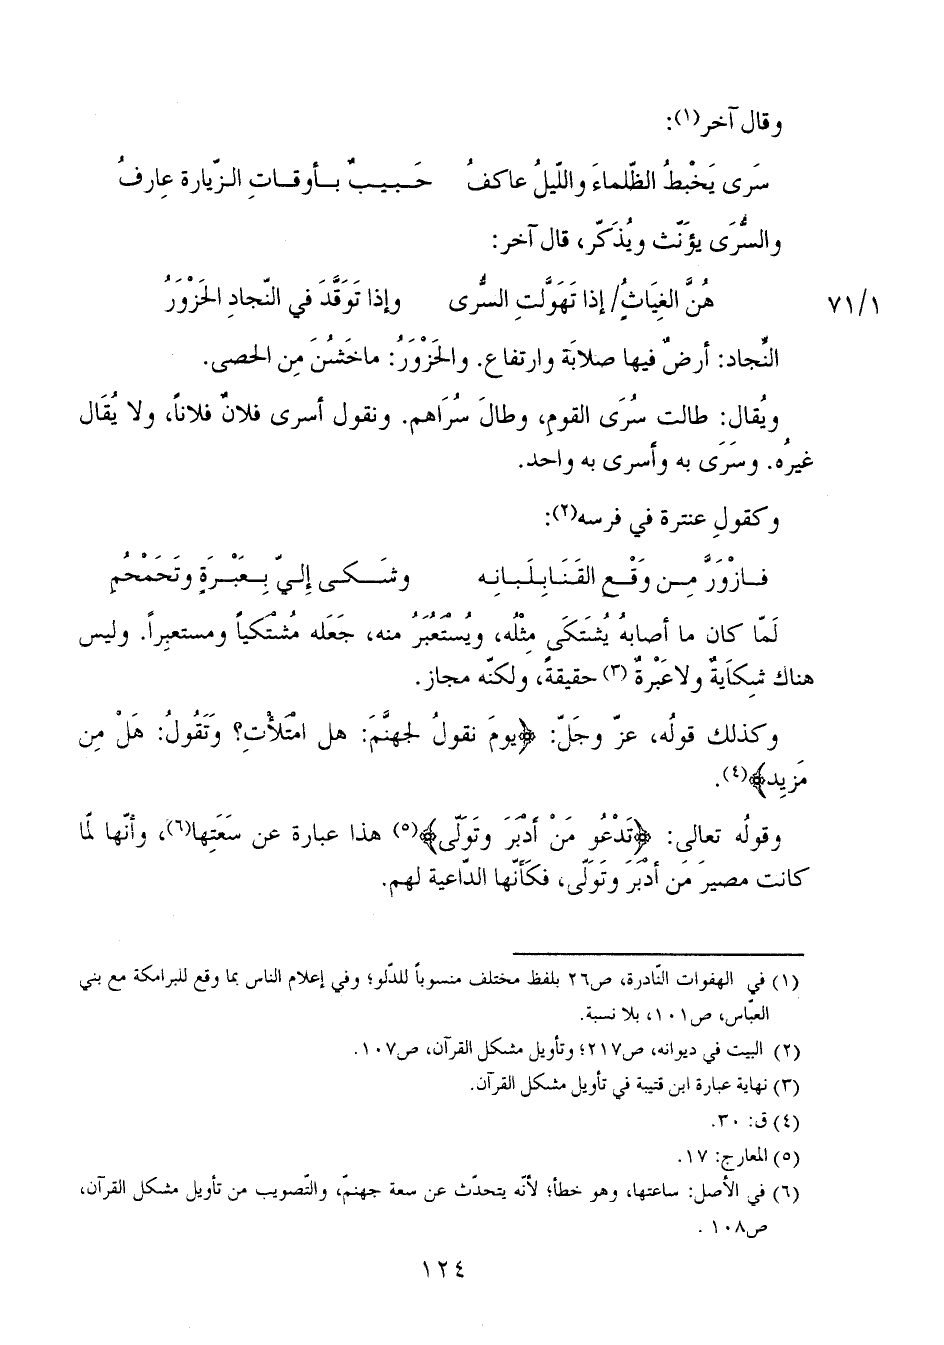 وقال آخر(١):
سَرى يَخْبطُ الظّلماءَ واللّيلُ عاكفُ حَـبيـبٌ بـأوقـاتِ الـزّيارة عارفُ
والسُّرَى يؤنّث ويُذَكّر، قال آخر:
٧١/١ هُنَّ الغِيَاثُ/ إذا تَهَوَّلتِ السُّرى وإذا تَوَقَّدَ في النّجادِ الحَزْوَرُ
النِّجاد: أرضٌ فيها صلابَة وارتفاع. والحَزْوَرُ: ماخَشُنَ مِن الحصى.
ويُقال: طالت سُرَى القومِ، وطالَ سُرَاهم. ونقول أسرى فلانٌ فلاناً، ولا يُقَال
غيرُه. وسَرَى به وأسرى به واحد.
وكقولِ عنترة في فرسه(٢):
فـازْوَرَّ مـن وَقْـعِ القَنَـابِلَبـانِه وشَـكـى إليّ بِـعَبْـرَةٍ وتَحَمْحُمِ
لَمّا كان ما أصابهُ يُشتَكَى مِثْلُه، ويُسْتَعْبَرُ منه، جَعَله مُشْتكياً ومستعبِراً. وليس
هناك شِكاَيَةٌ ولاعَبْرةٌ (٣) حقيقةً، ولكنّه مجاز.
وكذلك قولُه، عزّ وجَلّ: ﴿يومَ نقولُ لجهنَّمَ: هل امْتَلأْتِ؟ وَتَقُولُ: هَلْ مِن
مَزِيد﴾(٤).
وقولُه تعالى: ﴿تَدْعُو مَنْ أَدْبَرَ وتَوَلّى﴾(٥) هذا عبارة عن سَعَتِها(٦)، وأنّها لمّا
كانت مصيرَ مَن أدْبَرَ وتَوَلّى، فكَأنّها الدّاعية لهم.
(١) في الهفوات النّادرة، ص٢٦ بلفظ مختلف منسوباً للدّلو؛ وفي إعلام الناس بما وقع للبرامكة مع بني
العبّاس، ص١٠١، بلا نسبة.
(٢) البيت في ديوانه، ص٢١٧؛ وتأويل مشكل القرآن، ص١٠٧.
(٣) نهاية عبارة ابن قتيبة في تأويل مشكل القرآن.
(٤) ق: ٣٠.
(٥) المعارج: ١٧.
(٦) في الأصل: ساعتها، وهو خطأ؛ لأنّه يتحدّث عن سعة جهنمّ، والتّصويب من تأويل مشكل القرآن،
ص١٠٨.
١٢٤